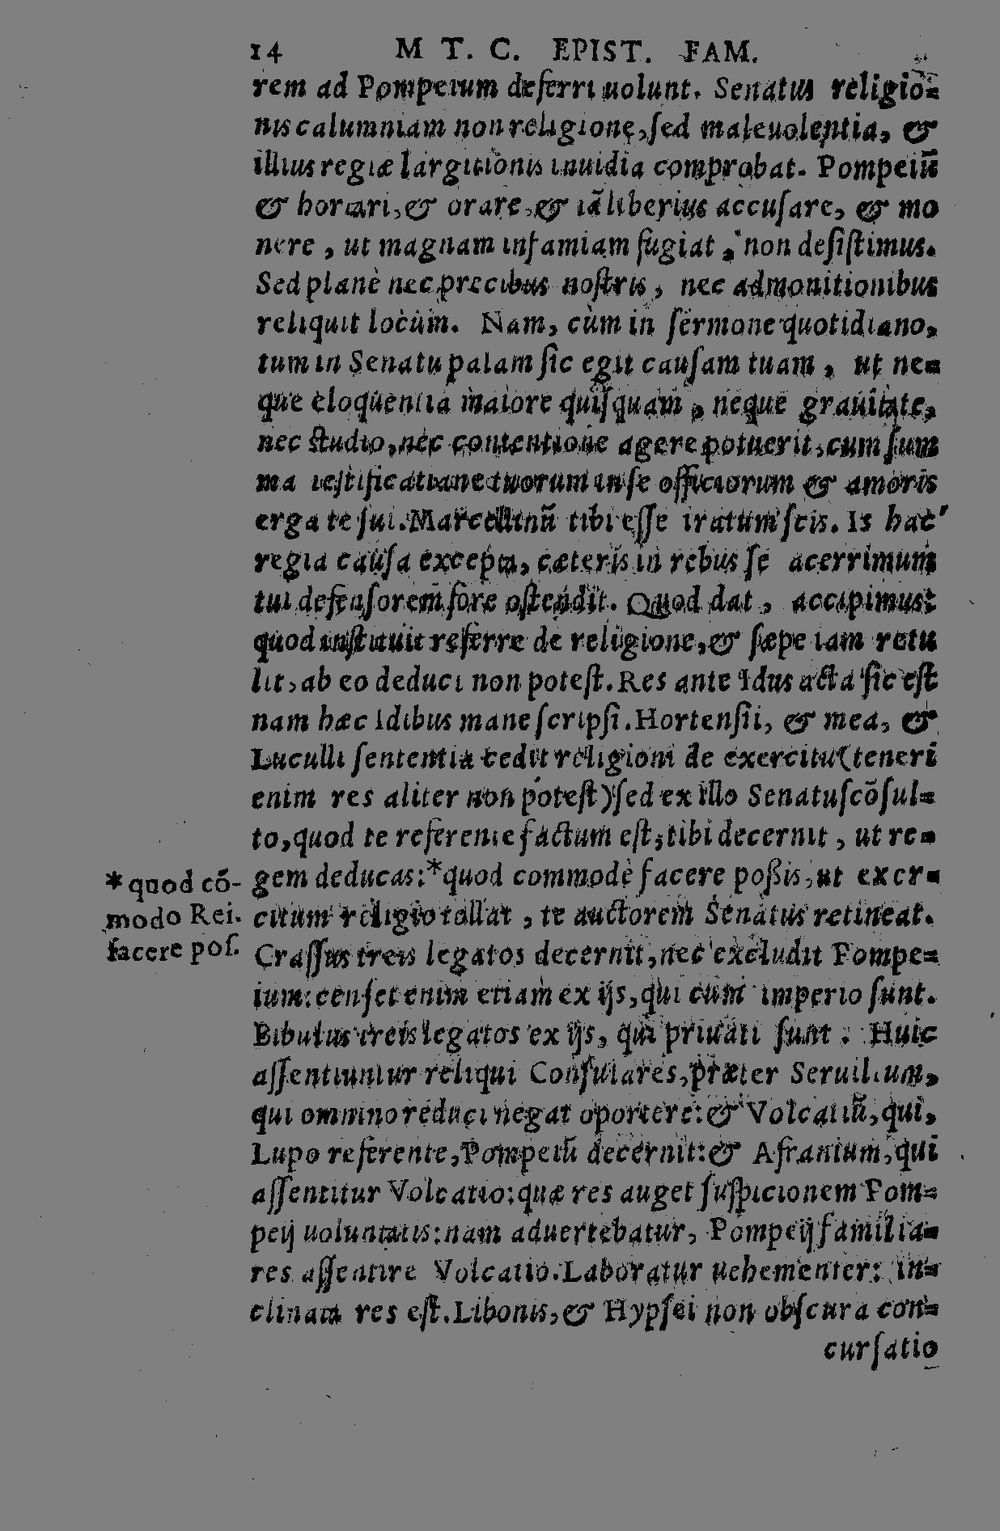 14 M T. C. EPIST. FAM.
rem ad Pompeium deferri uolunt. Senatus religio-
nis calumniam non religione, sed maleuolentia, &
illius regiæ largitionis inuidia comprobat. Pompeiū
& hortari, & orare, & iā liberius accusare, & mo
nere, ut magnam infamiam fugiat, non desistimus.
Sed planè nec precibus nostris, nec admonitionibus
reliquit locùm. Nam, cùm in sermone quotidiano,
tum in Senatu palam sic egit causam tuam, ut ne-
que eloquentia maiore quisquam, neque grauitate,
nec studio, nec contentione agere potuerit, cum sum
ma testificatione tuorum in se officiorum & amoris
erga te sui. Marcellinū tibi esse iratum scis. Is hac
regia causa excepta, cæteris in rebus se acerrimum
tui defensorem fore ostendit. Quod dat, accipimus:
quod instituit referre de religione, & sæpe iam retu
lit, ab eo deduci non potest. Res ante Idus acta sic est
nam hæc Idibus mane scripsi. Hortensii, & mea, &
Luculli sententia cedit religioni de exercitu (teneri
enim res aliter non potest) sed ex illo Senatuscōsul-
to, quod te referente factum est, tibi decernit, ut re-
gem deducas: *quod commodè facere poßis, ut exer-
citum religio tollat, te auctorem Senatus retineat.
Crassus treis legatos decernit, nec excludit Pompe-
ium: censet enim etiam ex ijs, qui cum imperio sunt.
Bibulus treis legatos ex ijs, qui priuati sunt. Huic
assentiuntur reliqui Consulares, præter Seruilium,
qui omnino reduci negat oportere: & Volcatiū, qui,
Lupo referente, Pompeiū decernit: & Afranium, qui
assentitur Volcatio: quæ res auget suspicionem Pom-
peij uoluntatis: nam aduertebatur, Pompeij familia-
res assentire Volcatio. Laboratur uehementer: in-
clinata res est. Libonis, & Hypsei non obscura con-
cursatio
*quod cō-
modo Rei.
facere pos.